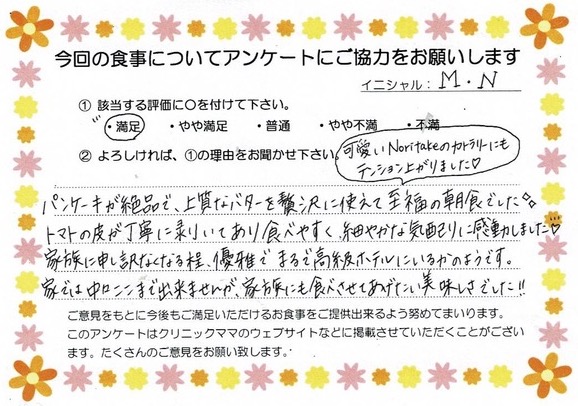 今回の食事についてアンケートにご協力をお願いします
イニシャル： M・N
① 該当する評価に○を付けて下さい。
・満足 ・やや満足 ・普通 ・やや不満 ・不満
② よろしければ、①の理由をお聞かせ下さい。
可愛いNoritakeのカトラリーにも
テンション上がりました♡
パンケーキが絶品で、上質なバターを贅沢に使えて至福の朝食でした
トマトの皮が丁寧に剥いてあり食べやすく、細やかな気配りに感動しました♡
家族に申し訳なくなる程、優雅でまるで高級ホテルにいるかのようです。
家では中々ここまで出来ませんが、家族にも食べさせてあげたい美味しさでした!!
ご意見をもとに今後もご満足いただけるお食事をご提供出来るよう努めてまいります。
このアンケートはクリニックママのウェブサイトなどに掲載させていただくことがござい
ます。たくさんのご意見をお願い致します。